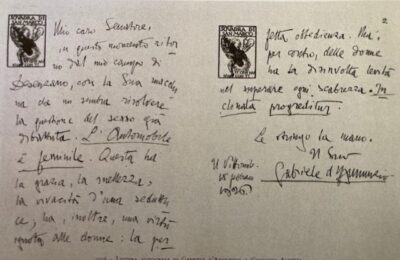 SQVADRA DI
SAN MARCO
Mio caro Senatore,
in questo momento ritor
no dal mio campo di
Desenzano, con la Sua macchi
na che mi sembra risolvere
la questione del sesso già
dibattuta. L'Automobile
è femminile. Questa ha
la grazia, la snellezza,
la vivacità d'una seduttri
ce; ha, inoltre, una virtù
ignota alle donne: la per
2
SQVADRA DI
SAN MARCO
fetta obbedienza. Ma,
per contro, delle donne
ha la disinvolta levità
nel superare ogni scabrezza. In
clinata progreditur.
Le stringo la mano.
Il Suo
Gabriele d'Annunzio
Il Vittoriale
Lettera autografa di Gabriele d'Annunzio a Giovanni Agnelli